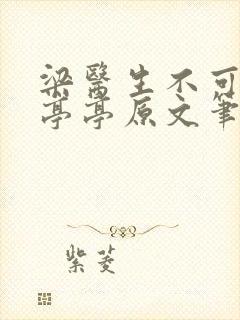 梁醫生不可
亭亭原文筆
紫菱